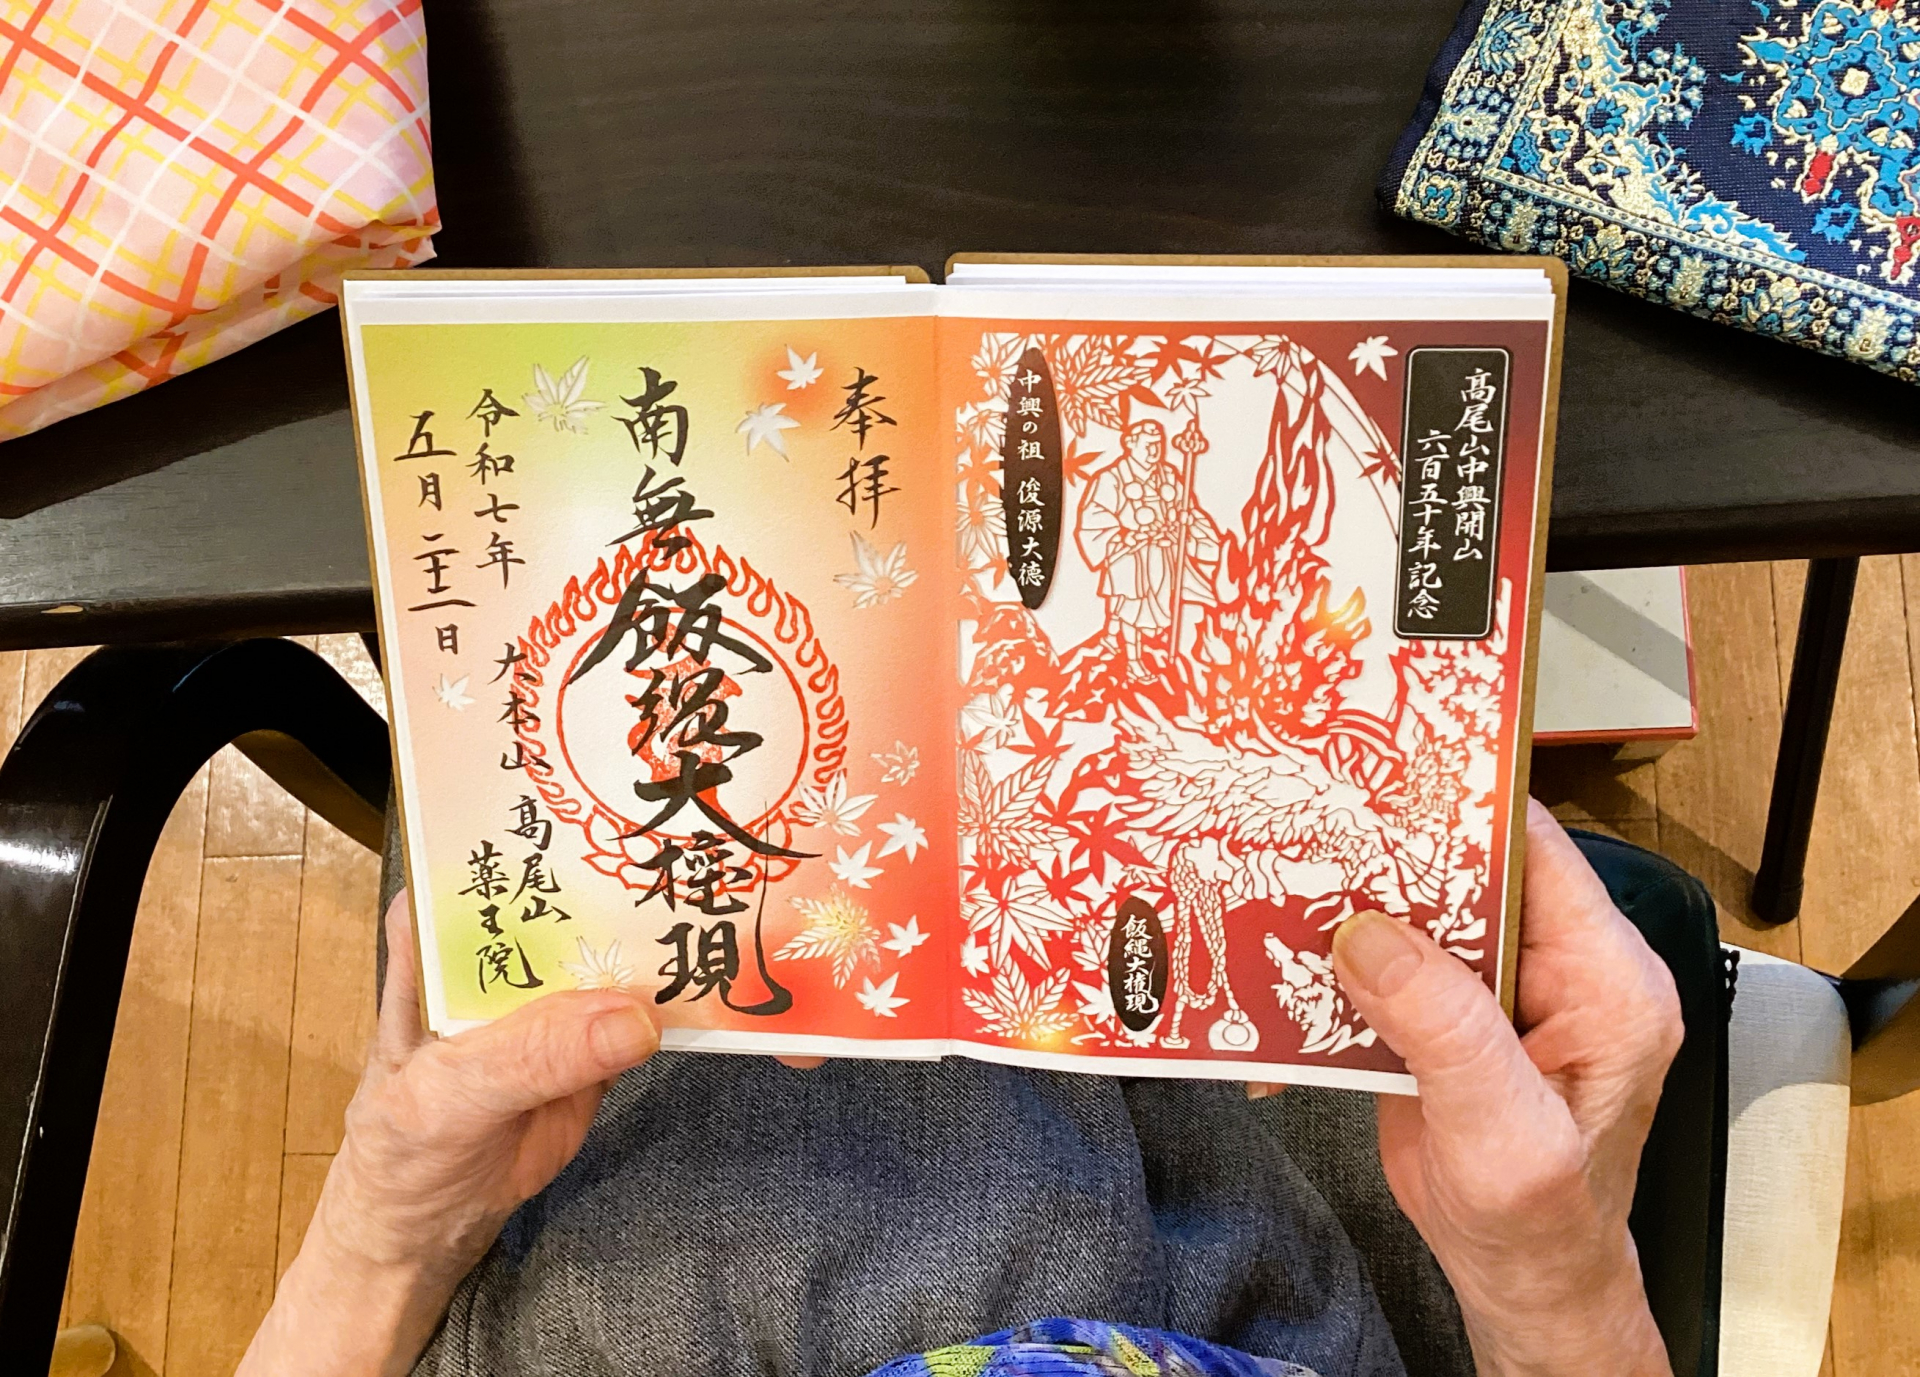 高尾山中興開山
六百五十年記念
中興の祖 俊源大徳
飯縄大権現
奉拝
南無飯縄大権現
令和七年
五月二十二日
大本山 高尾山
薬王院